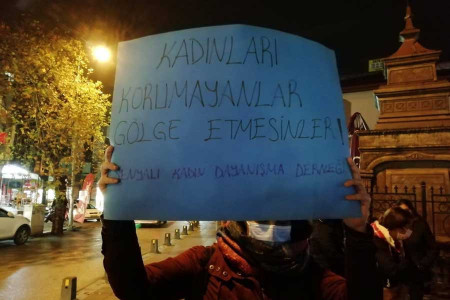 KADINLARI
KORUMAYANLAR
GÖLGE ETMESİNLER!
KADIN DAYANIŞMA DERNEĞİ